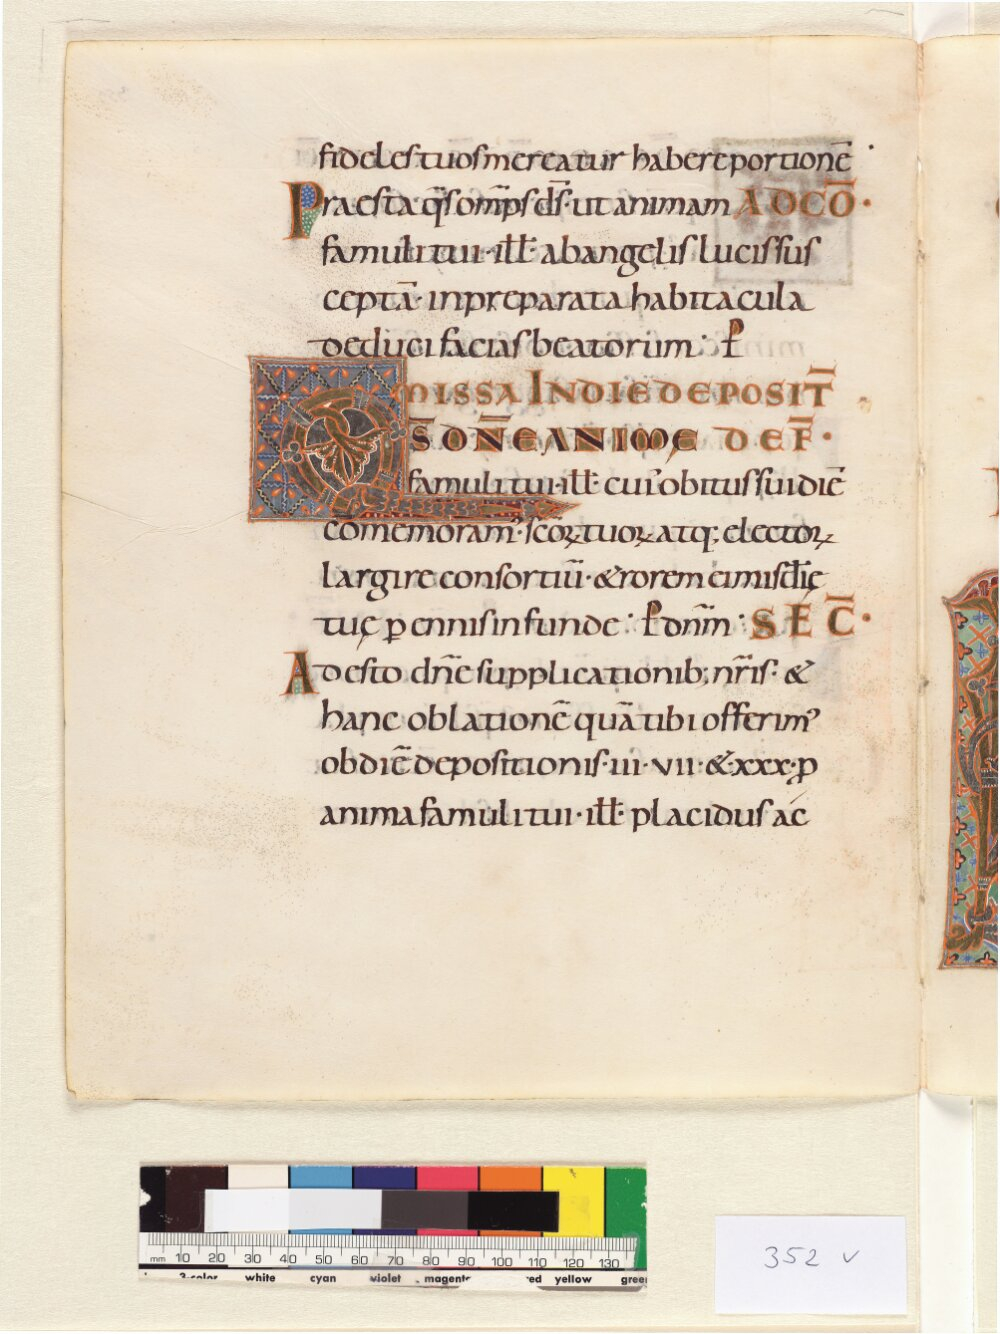 fideles tuos mereatur habere portionē
Praesta qs̄ omp̄s ds̄· ut animam AD CŌ·
famuli tui· ill̄· ab angelis lucis sus
ceptā· in preparata habitacula
deduci facias beatorum· P̄
MISSA IN DIE DEPOSIT̄
Q̄S DN̄E ANIMĘ DEF̄·
famuli tui· ill̄· cuī obitus sui diē
comemoram᾽· scōꝝ tuoꝝ atq; electoꝝ
largire consortiū· & rorem ei mis dīę
tuę ꝑennis infunde· P̄ dnm̄· SEC̄·
Adesto dn̄e supplicationib; nr̄is· &
hanc oblationē quā tibi offerim᾽
ob diē depositionis· III· VII· & XXX· ꝓ
anima famuli tui· ill̄· placidus ac
mm 10 20 30 40 50 60 70 80 90 100 110 120 130
3-color white cyan violet magenta red yellow green
352 v